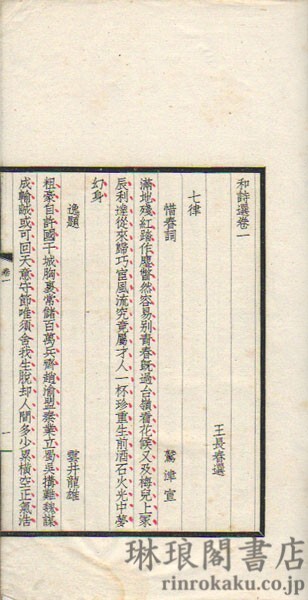 和詩選卷一
王長春選
七律
惜春詞 鷲津宣
滿地殘紅踏作塵瞥然容易別青春既過台嶺看花候又及梅兒上冢
辰利達從來歸巧宦風流究竟屬才人一杯珍重生前酒石火光中夢
幻身
逸題 雲井龍雄
粗豪自許國干城胸裏常儲百萬兵齊趙渝盟秦業立蜀吳搆難魏謀
成輸誠或可回天意守節唯須舍我生脫却人間多少累橫空正氣浩
卷一
一
琳琅閣書店
rinrokaku.co.jp